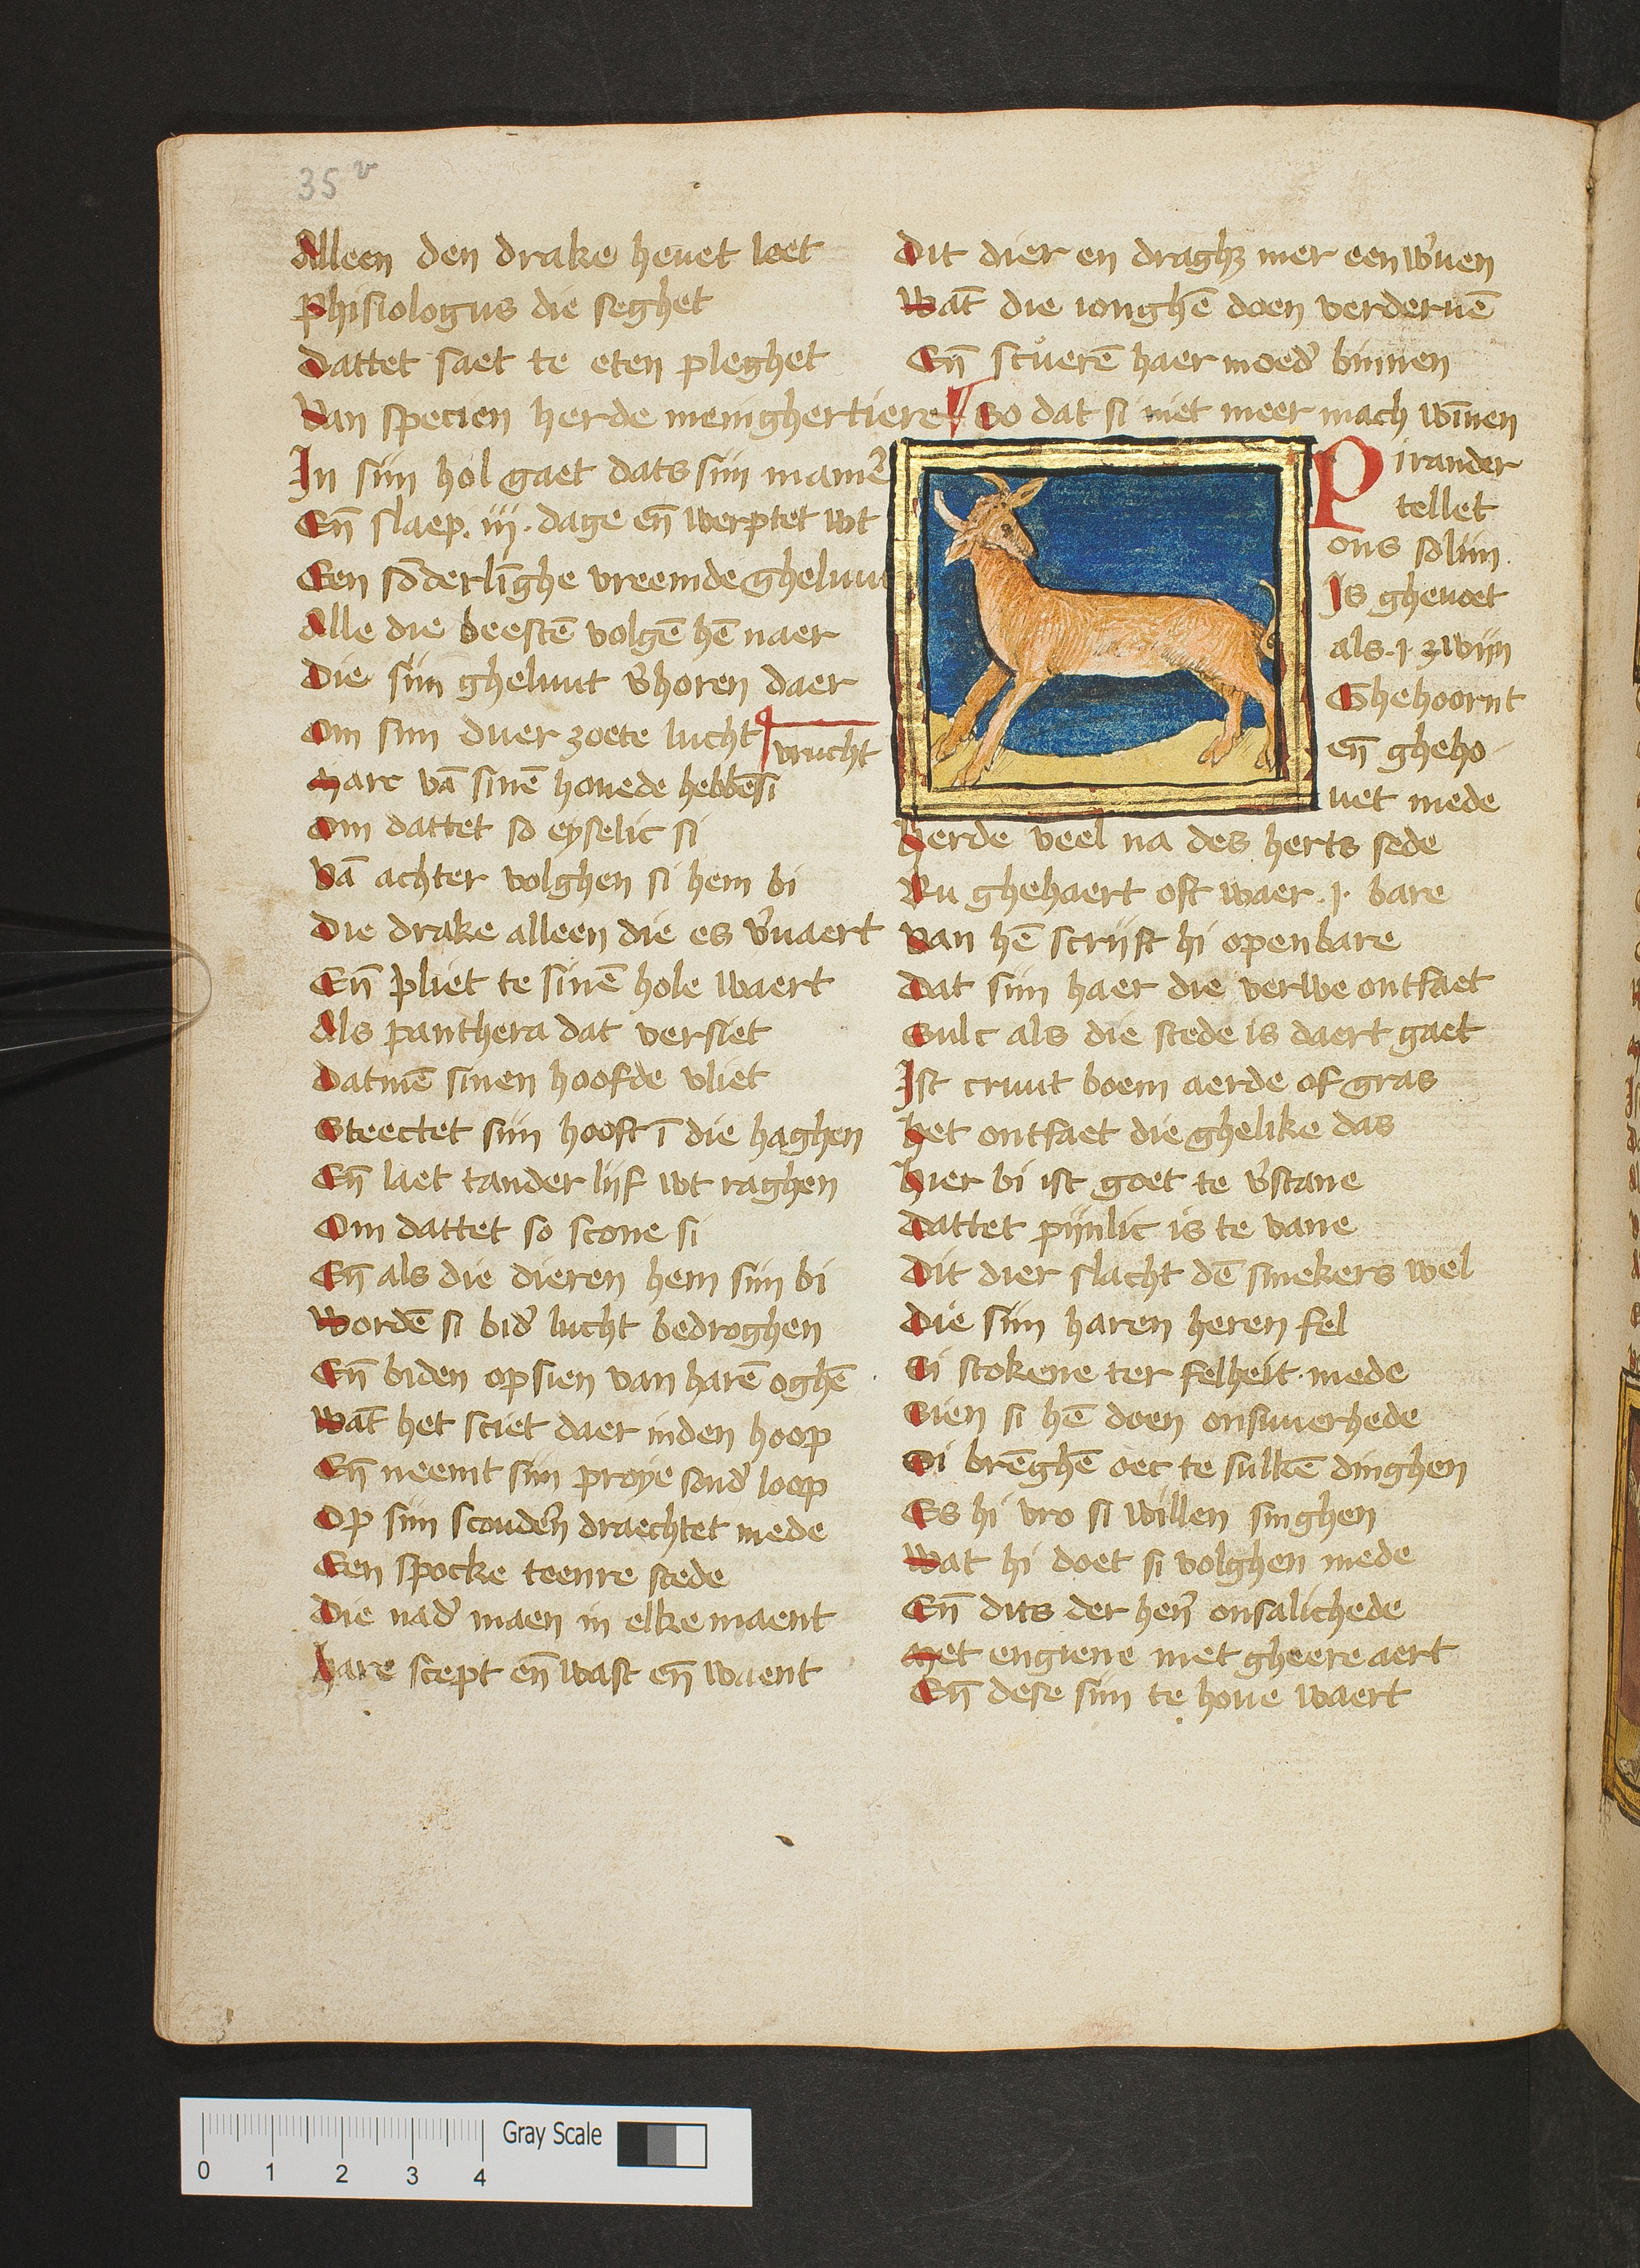 35v
Alleen den drake heuet leet
Phisiologus die seghet
Dattet saet te eten pleghet
Van specien herde menighertiere
In siin hol gaet dats siin manier̉
En̄ slaep .iij. dage en̄ werptet wt
Een sōderlīghe vreemde gheluut
Alle die beestē volgē hē naer
Die siin gheluut v̉horen daer
Om siin duer zoete lucht
vrucht
Marc vā sinē houede hebbēsi
Om dattet so eyselic si
Vā achter volghen si hem bi
Die drake alleen die es v̉uaert
En̄ vliet te sinē hole waert
Als panthera dat versiet
Datmē sinen hoofde vliet
Steectet siin hooft ī die haghen
En̄ laet tander lijf wt raghen
Om dattet so scone si
En̄ als die dieren hem siin bi
Wordē si bid̉ lucht bedroghen
En̄ biden opsien van harē oghē
Wāt het sciet daer inden hoop
En̄ neemt siin proye sond̉ loop
Op siin scoudern̄ draechtet mede
Een spocke teenre stede
Die nad̉ maen in elke maent
Hare scept en̄ wast en̄ waent
Dit dier en draghꝫ mer een w̉uen
Wāt die ionghē doen verderuē
En̄ scuerē haer moed̉ binnen
So dat si niet meer mach wīnen
Pirander
tellet
ons solijn
Is gheuoet
als .j. zwijn
Ghehoornt
en̄ gheho
uet mede
Herde veel na des herts sede
Ru ghehaert oft waer .j. bare
Van hē scrijft hi openbare
Dat siin haer die verwe ontfaet
Sulc als die stede is daert gaet
Ist cruut boem aerde of gras
Het ontfaet die ghelike das
Hier bi ist goet te v̉stane
Dattet pijnlic is te vane
Dit dier slacht dē smekers wel
Die siin haren heren fel
Si stokene ter felheit mede
Sien si hē doen onsuuerhede
Si brēghē oec te sulkē dinghen
Es hi vro si willen singhen
Wat hi doet si volghen mede
En̄ dits der her̉ onsalichede
Met engiene met gheere aert
En̄ dese siin te houe waert
Gray Scale
0 1 2 3 4